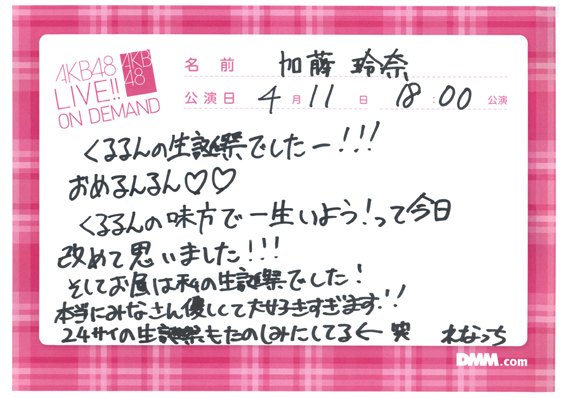 AKB48
LIVE!!
ON DEMAND
AKB
48
名前 加藤 玲奈
公演日 4月11日 18:00公演
くるるんの生誕祭でしたー!!!
おめるんるん♡♡
くるるんの味方で一生いよう!って今日
改めて思いました!!!
そしてお昼は私の生誕祭でした!
本当にみなさん優しくて大好きすぎます!!
24サイの生誕祭もたのしみにしてる← 笑 れなっち
DMM.com